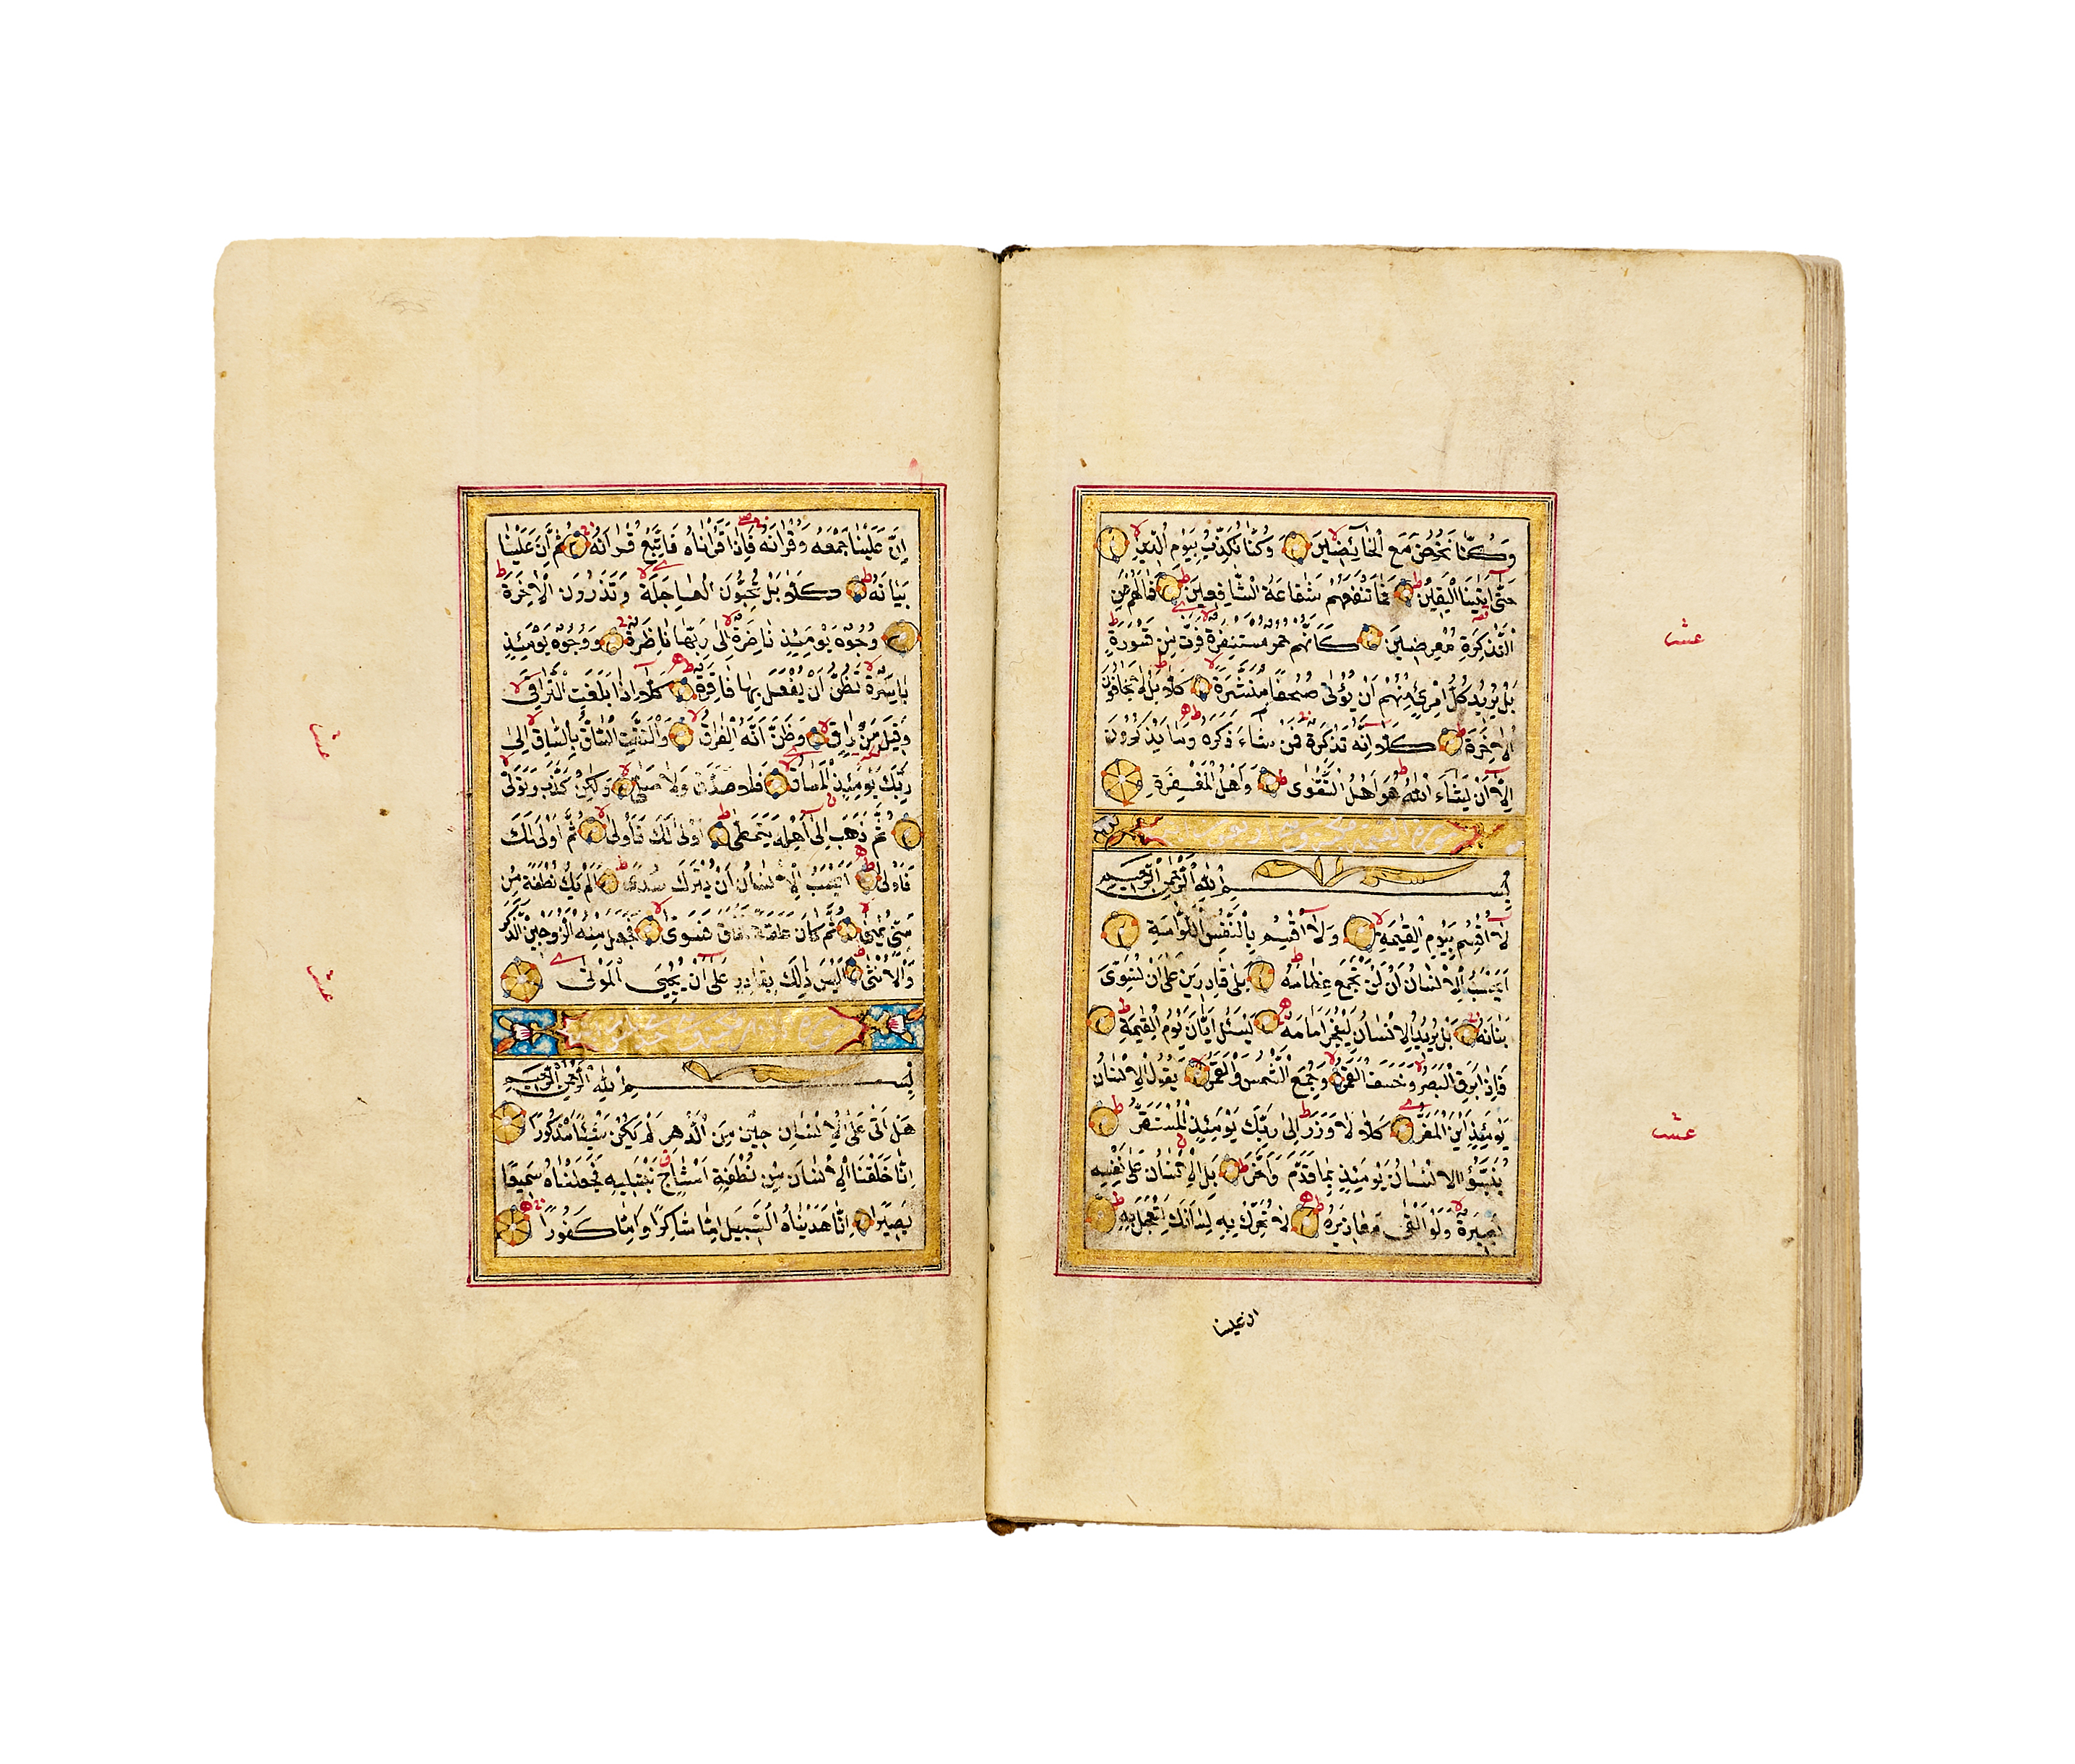 وَكُنَّا نَخُوضُ مَعَ الْخَائِضِينَ وَكُنَّا نُكَذِّبُ بِيَوْمِ الدِّينِ
حَتَّى أَتَينَا الْيَقِينُ فَمَا تَنْفَعُهُمْ شَفَاعَةُ الشَّافِعِينَ فَمَا لَهُمْ عَنِ
التَّذْكِرَةِ مُعْرِضِينَ كَأَنَّهُمْ حُمُرٌ مُسْتَنْفِرَةٌ فَرَّتْ مِنْ قَسْوَرَةٍ
بَلْ يُرِيدُ كُلُّ امْرِئٍ مِنْهُمْ أَنْ يُؤْتَى صُحُفًا مُنَشَّرَةً كَلَّا بَلْ لَا يَخَافُونَ
الْاخِرَةَ كَلَّا اِنَّهُ تَذْكِرَةٌ فَمَنْ شَاءَ ذَكَرَهُ وَمَا يَذْكُرُونَ
اِلَّا اَنْ يَشَاءَ اللّٰهُ هُوَ اَهْلُ التَّقْوٰى وَاَهْلُ الْمَغْفِرَةِ
بِسْمِ اللّٰهِ الرَّحْمٰنِ الرَّحِيمِ
لَا اُقْسِمُ بِيَوْمِ الْقِيٰمَةِ وَلَا اُقْسِمُ بِالنَّفْسِ اللَّوَّامَةِ
اَيَحْسَبُ الْاِنْسَانُ اَنْ لَنْ نَجْمَعَ عِظَامَهُ بَلٰى قَادِرِينَ عَلٰى اَنْ نُسَوِّىَ
بَنَانَهُ بَلْ يُرِيدُ الْاِنْسَانُ لِيَفْجُرَ اَمَامَهُ يَسْـَٔلُ اَيَّانَ يَوْمُ الْقِيٰمَةِ
فَاِذَا بَرِقَ الْبَصَرُ وَخَسَفَ الْقَمَرُ وَجُمِعَ الشَّمْسُ وَالْقَمَرُ يَقُولُ الْاِنْسَانُ
يَوْمَئِذٍ اَيْنَ الْمَفَرُّ كَلَّا لَا وَزَرَ اِلٰى رَبِّكَ يَوْمَئِذٍ الْمُسْتَقَرُّ
يُنَبَّؤُا الْاِنْسَانُ يَوْمَئِذٍ بِمَا قَدَّمَ وَاَخَّرَ بَلِ الْاِنْسَانُ عَلٰى نَفْسِهِ
بَصِيرَةٌ وَلَوْ اَلْقٰى مَعَاذِيرَهُ لَا تُحَرِّكْ بِهِ لِسَانَكَ لِتَعْجَلَ بِهِ
ان علينا
عشر
عشر
اِنَّ عَلَيْنَا جَمْعَهُ وَقُرْاٰنَهُ فَاِذَا قَرَاْنَاهُ فَاتَّبِعْ قُرْاٰنَهُ ثُمَّ اِنَّ عَلَيْنَا
بَيَانَهُ كَلَّا بَلْ تُحِبُّونَ الْعَاجِلَةَ وَتَذَرُونَ الْاٰخِرَةَ
وُجُوهٌ يَوْمَئِذٍ نَاضِرَةٌ اِلٰى رَبِّهَا نَاظِرَةٌ وَوُجُوهٌ يَوْمَئِذٍ
بَاسِرَةٌ تَظُنُّ اَنْ يُفْعَلَ بِهَا فَاقِرَةٌ كَلَّا اِذَا بَلَغَتِ التَّرَاقِىَ
وَقِيلَ مَنْ رَاقٍ وَظَنَّ اَنَّهُ الْفِرَاقُ وَالْتَفَّتِ السَّاقُ بِالسَّاقِ اِلٰى
رَبِّكَ يَوْمَئِذٍ الْمَسَاقُ فَلَا صَدَّقَ وَلَا صَلّٰى وَلٰكِنْ كَذَّبَ وَتَوَلّٰى
ثُمَّ ذَهَبَ اِلٰى اَهْلِهِ يَتَمَطّٰى اَوْلٰى لَكَ فَاَوْلٰى ثُمَّ اَوْلٰى لَكَ
فَاَوْلٰى اَيَحْسَبُ الْاِنْسَانُ اَنْ يُتْرَكَ سُدًى اَلَمْ يَكُ نُطْفَةً مِنْ
مَنِىٍّ يُمْنٰى ثُمَّ كَانَ عَلَقَةً فَخَلَقَ فَسَوّٰى فَجَعَلَ مِنْهُ الزَّوْجَيْنِ الذَّكَرَ
وَالْاُنْثٰى اَلَيْسَ ذٰلِكَ بِقَادِرٍ عَلٰى اَنْ يُحْيِىَ الْمَوْتٰى
بِسْمِ اللّٰهِ الرَّحْمٰنِ الرَّحِيمِ
هَلْ اَتٰى عَلَى الْاِنْسَانِ حِينٌ مِنَ الدَّهْرِ لَمْ يَكُنْ شَيْئًا مَذْكُورًا
اِنَّا خَلَقْنَا الْاِنْسَانَ مِنْ نُطْفَةٍ اَمْشَاجٍ نَبْتَلِيهِ فَجَعَلْنَاهُ سَمِيعًا
بَصِيرًا اِنَّا هَدَيْنَاهُ السَّبِيلَ اِمَّا شَاكِرًا وَاِمَّا كَفُورًا
عشر
عشر